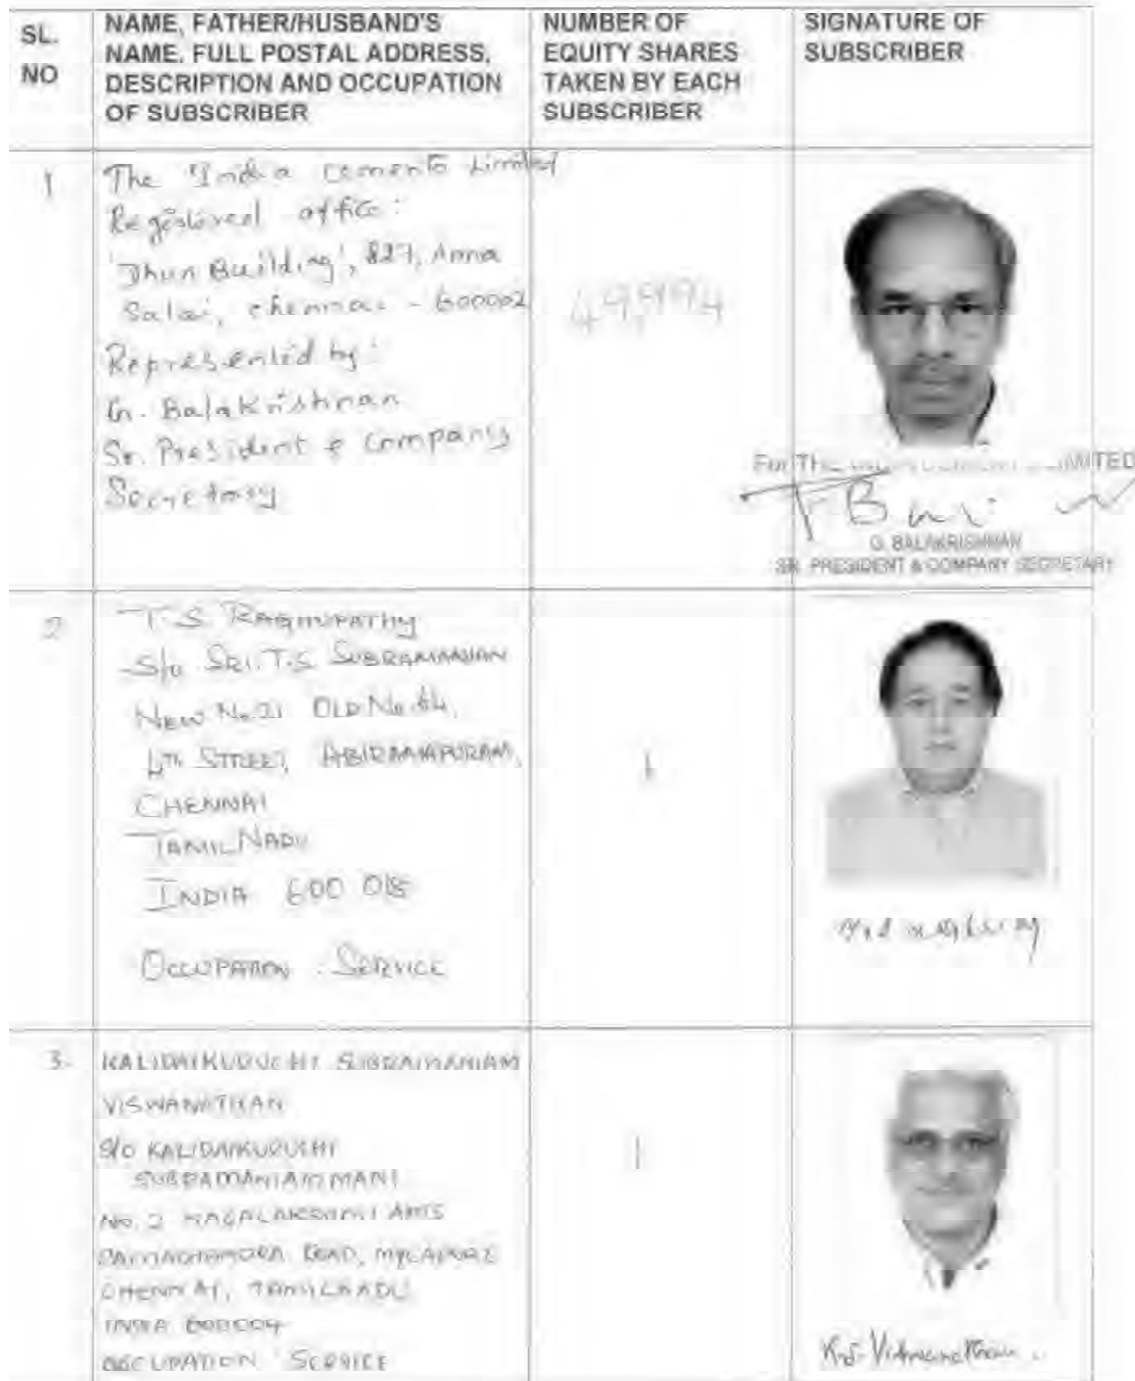 SL. NO
NAME, FATHER/HUSBAND'S
NAME, FULL POSTAL ADDRESS,
DESCRIPTION AND OCCUPATION
OF SUBSCRIBER
NUMBER OF
EQUITY SHARES
TAKEN BY EACH
SUBSCRIBER
SIGNATURE OF
SUBSCRIBER
1
The India Cements Limited
Registered office:
'Dhun Building', 827, Anna
Salai, Chennai - 600002
Represented by:
G. Balakrishnan
Sr. President & Company
Secretary
49,994
For THE LIMITED
G. BALAKRISHNAN
SR. PRESIDENT & COMPANY SECRETARY
2
T.S RAGHUPATHY
S/o SRI. T.S SUBRAMANIAN
NEW No.21 OLD No.
4TH STREET, ABIRAMAPURAM,
CHENNAI
TAMIL NADU
INDIA 600 018
OCCUPATION : SERVICE
1
3.
KALIDAIKURUCHI SUBRAMANIAM
VISWANATHAN
S/O KALIDAIKURUCHI
SUBRAMANIAM MANI
NO. 2 ARTS
ROAD, MYLAPORE
CHENNAI, TAMILNADU
INDIA 600004
OCCUPATION SERVICE
1
K.S. Viswanathan